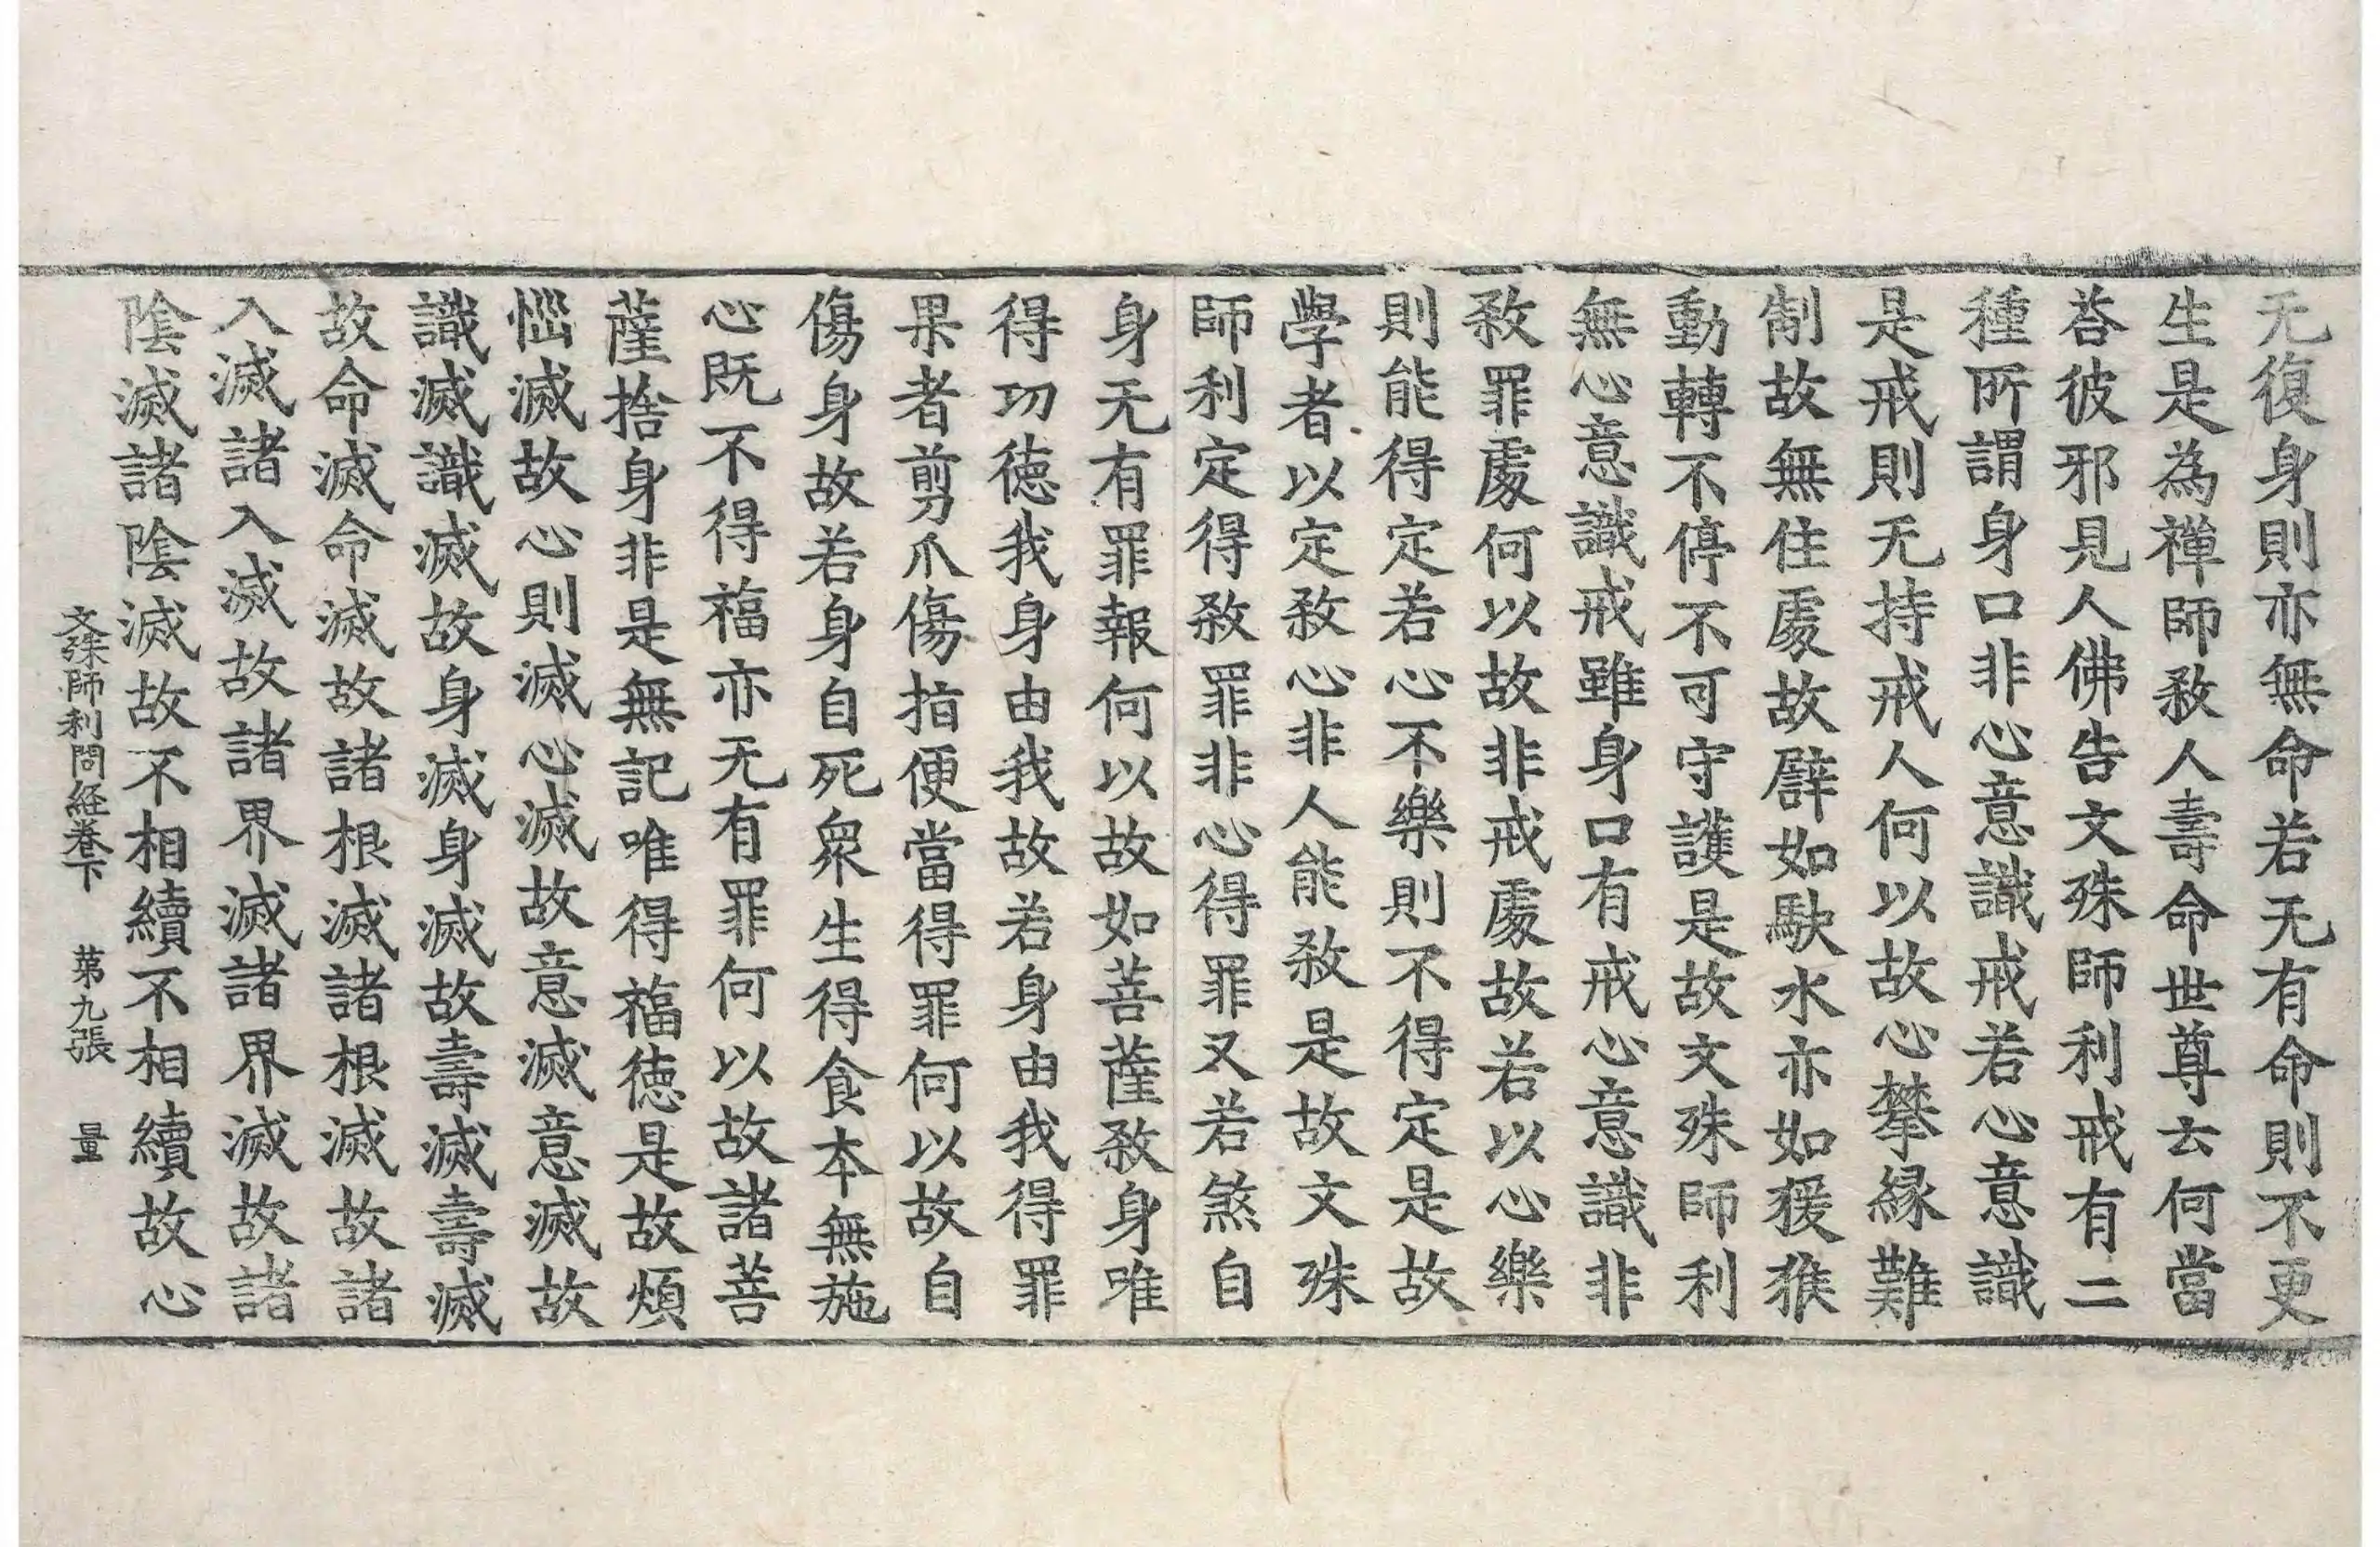 无復身則亦無命若无有命則不更
生是為禪師敎人壽命世尊云何當
荅彼邪見人佛告文殊師利戒有二
種所謂身口非心意識戒若心意識
是戒則无持戒人何以故心攀縁難
制故無住處故譬如駛水亦如猨猴
動轉不停不可守護是故文殊師利
無心意識戒雖身口有戒心意識非
敎罪處何以故非戒處故若以心樂
則能得定若心不樂則不得定是故
學者以定敎心非人能敎是故文殊
師利定得敎罪非心得罪又若煞自
身无有罪報何以故如菩薩敎身唯
得功德我身由我故若身由我得罪
果者剪爪傷指便當得罪何以故自
傷身故若身自死衆生得食本無施
心既不得福亦无有罪何以故諸菩
薩捨身非是無記唯得福德是故煩
惱滅故心則滅心滅故意滅意滅故
識滅識滅故身滅身滅故壽滅壽滅
故命滅命滅故諸根滅諸根滅故諸
入滅諸入滅故諸界滅諸界滅故諸
陰滅諸陰滅故不相續不相續故心
文殊師利問経卷下 苐九張 量